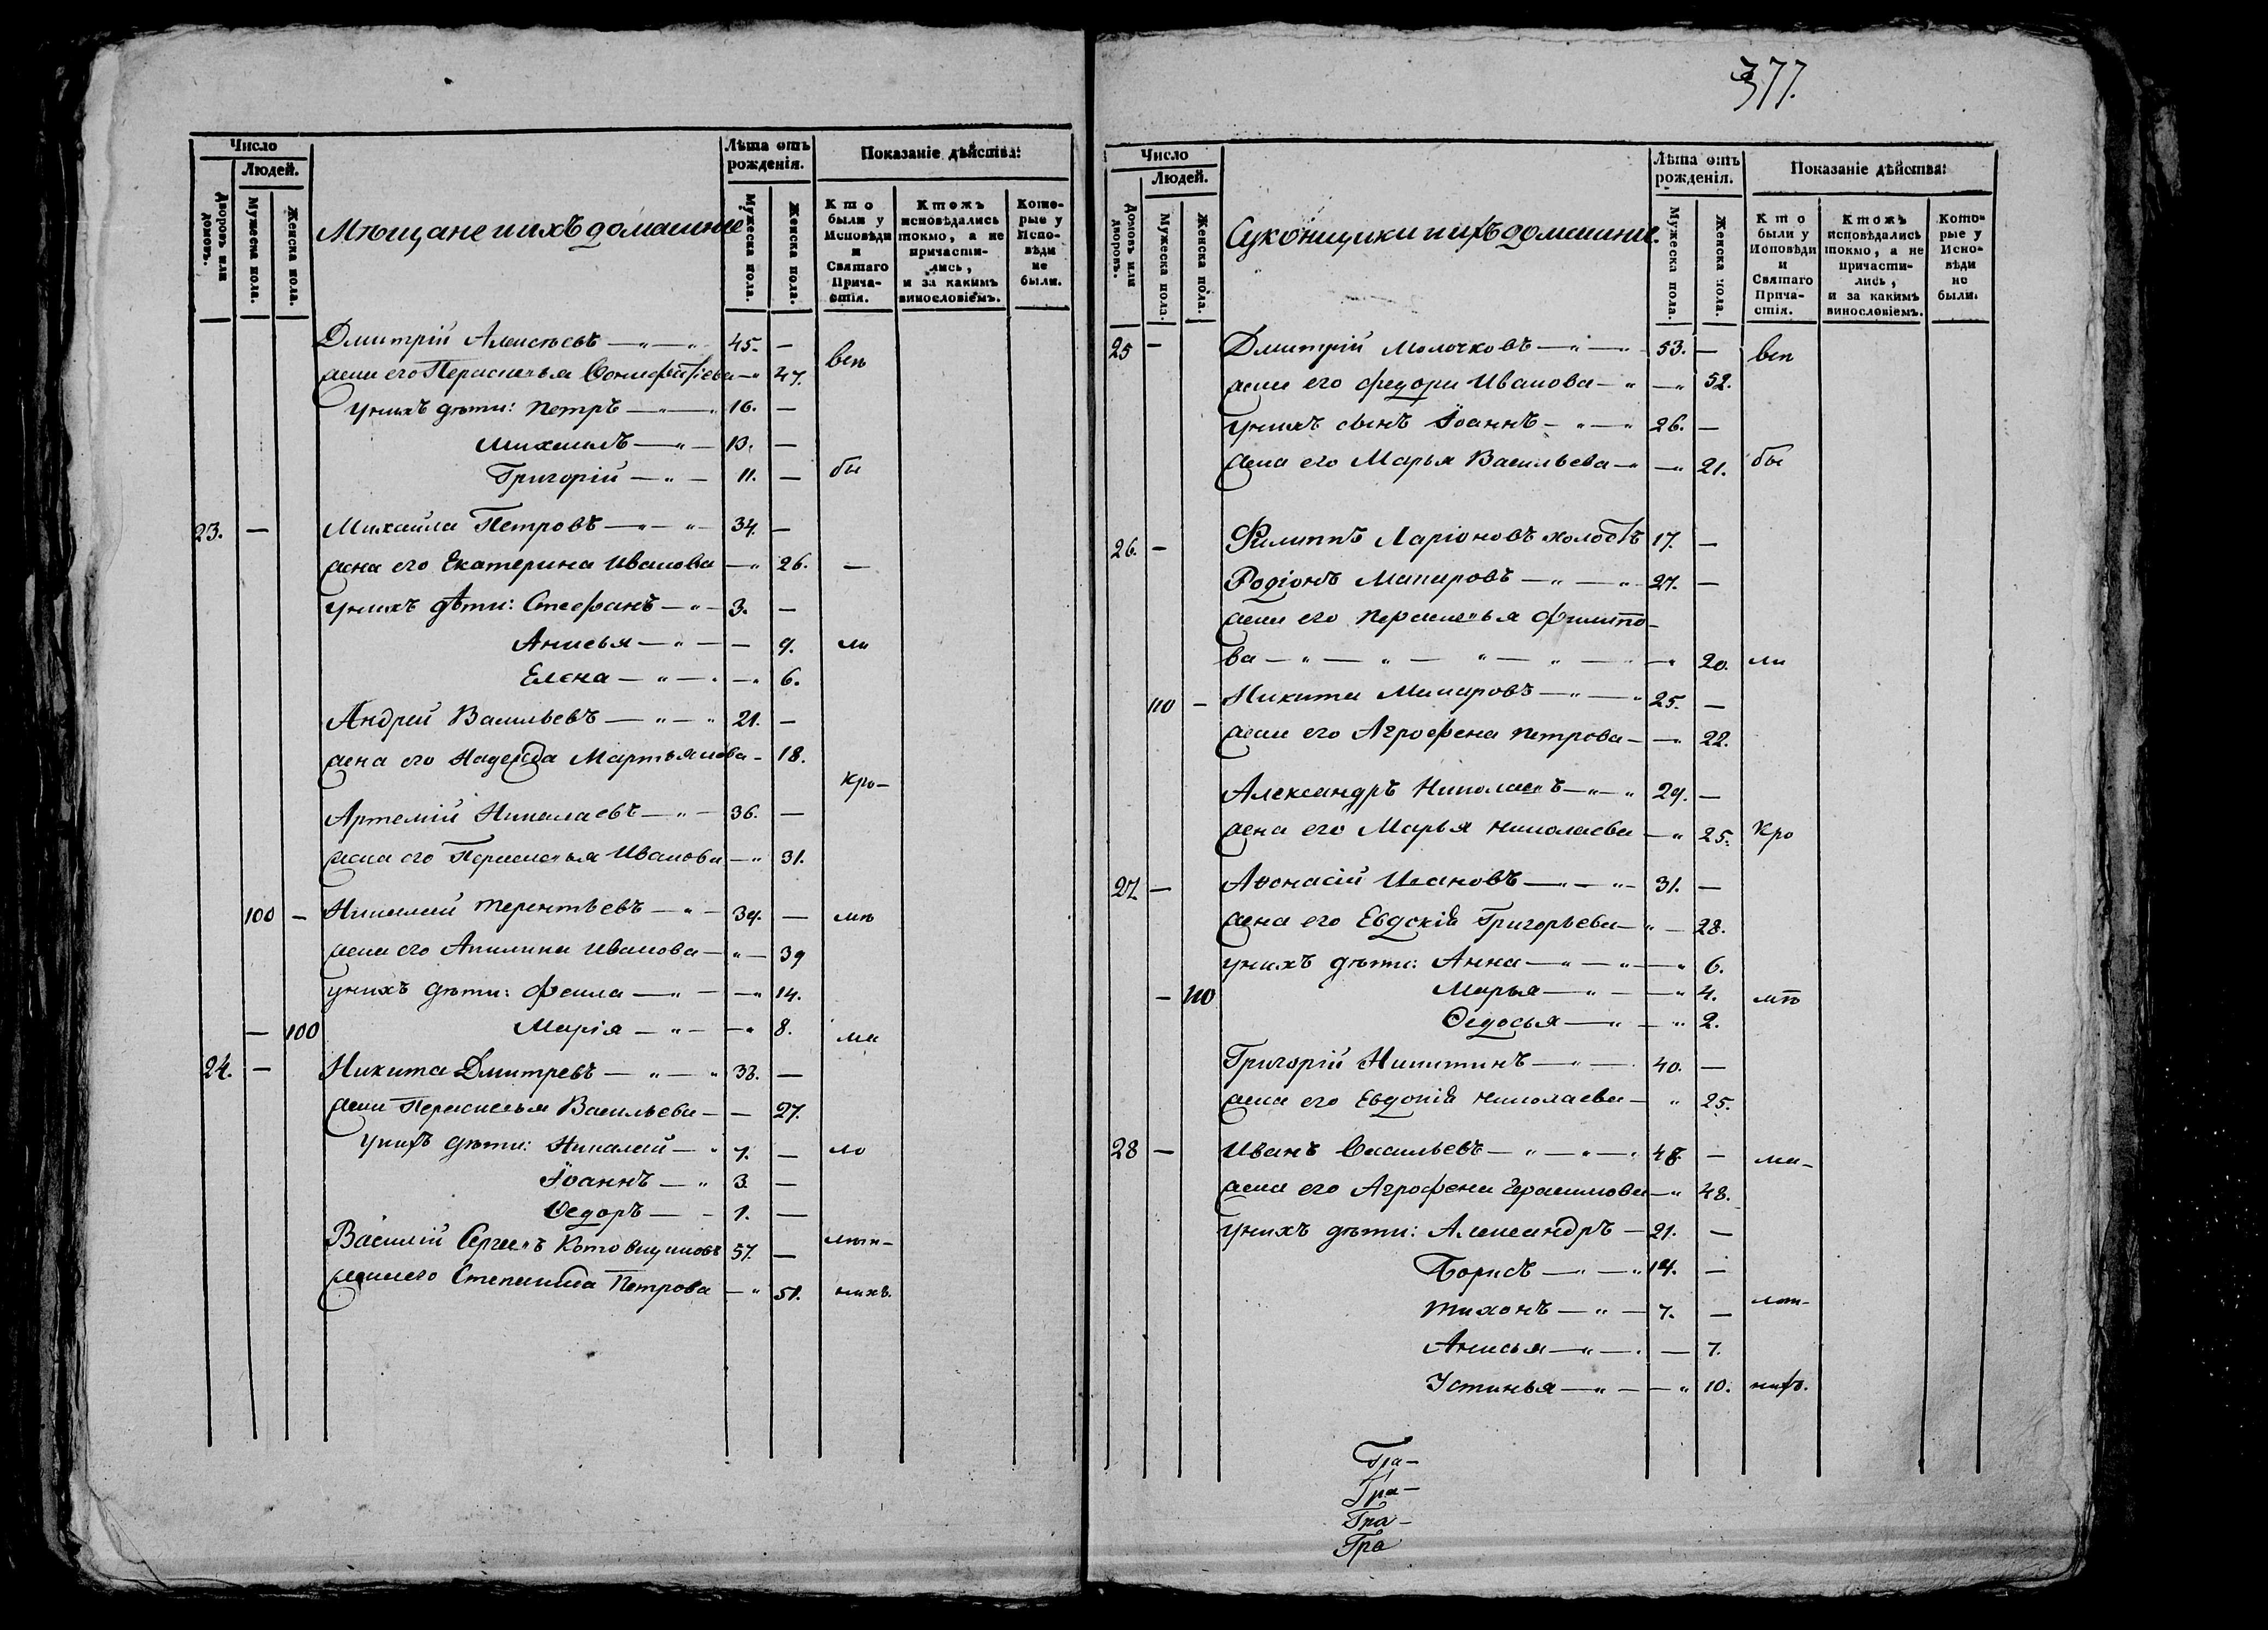 377.
Число
Людей.
Дворовъ или домовъ.
Мужеска пола.
Женска пола.
Мѣщане и ихъ домашніе
Лѣта отъ рожденія.
Мужеска пола.
Женска пола.
Показаніе дѣйства:
Кто были у Исповѣди и Святаго Причастія.
Ктожъ исповѣдались токмо, а не причастились, и за какимъ винословіемъ.
Которые у Исповѣди не были.
Дмитрій Алексѣевъ — " — " 45. —
жена его Парасковья — " 47.
У нихъ дѣти: Петръ — " — " 16. —
Михаилъ — " — 13. —
Григорій — " — 11. — бы
23. — Михайла Петровъ — " — " 34. —
жена его Екатерина Иванова — " 26. —
у нихъ дѣти: Стефанъ — " — 3. —
Анисья — " — — 9. ли
Елена — " — " — " 6.
Андрей Васильевъ — " — " 21. —
жена его Надежда Мартьянова — 18.
кро-
Артемій Николаевъ — " — 36. —
жена его Парасковья Иванова — " 31.
100 — Николай Терентьевъ — " — 39. — мѣ
жена его Акилина Иванова — " — 39
у нихъ дѣти: Фекла — " — — " 14.
— 100 Марія — " — — " 8. ма
24. — Никита Дмитревъ — " — " 38. —
жена Парасковья Васильева — — 27.
У нихъ дѣти: Николай — " 7. — ло
Іоаннъ — " 3. —
Ѳедоръ — — 1. —
Василій Сергеевъ 57. — лѣт-
жена его Степанида Петрова — " 51. нихъ.
Число
Людей.
Домовъ или дворовъ.
Мужеска пола.
Женска пола.
Суконщики и ихъ домашніе.
Лѣта отъ рожденія.
Мужеска пола.
Женска пола.
Показаніе дѣйства:
Кто были у Исповѣди и Святаго Причастія.
Ктожъ исповѣдались токмо, а не причастились, и за какимъ винословіемъ.
Которые у Исповѣди не были.
25 — Дмитрій Молочковъ — " — " 53. — всѣ
жена его Федора Иванова — " — " 52.
у нихъ сынъ Іоаннъ — " — " 26. —
жена его Марья Васильева — " — " 21. бы
26. — Филиппъ Ларіоновъ холостъ 17. —
Родіонъ Макаровъ — " — " 27. —
жена его Парасковья Филиппо-
ва — " — " — " — " — " — " 20. ли
110 — Никита Макаровъ — " — " 25. —
жена его Агрофена Петрова — — " 22.
Александръ Николаевъ — " — " 29. —
жена его Марья Николаева — " 25. кро
27 — Аѳонасій Исаковъ — " — " — 31. —
жена его Евдокія Григорьева — " — 28.
у нихъ дѣти: Анна — " — " — — " 6.
— 110 Марья — " — — " 4. мѣ
Ѳедосья — " — " 2.
Григорій Никитинъ — " — 40. —
жена его Евдокія Николаева — " 25.
28 — Иванъ Васильевъ — " — " — " 48 — ма-
жена его Агрофена Герасимова — " 48.
у нихъ дѣти: Александръ — 21. —
Борисъ — " — " 14. —
Тихонъ — " — 7. — лѣт-
Анисья — " — " — 7.
Устинья — " — — " 10. нихъ.
Гра-
Гра-
Гра-
Гра